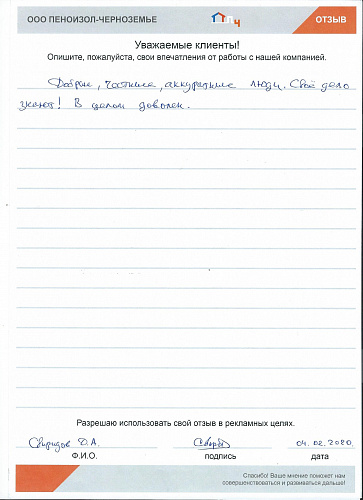 ООО ПЕНОИЗОЛ-ЧЕРНОЗЕМЬЕ
ПЧ
ОТЗЫВ
Уважаемые клиенты!
Опишите, пожалуйста, свои впечатления от работы с нашей компанией.
Добрые, честные, аккуратные люди. Своё дело
знают! В целом доволен.
Разрешаю использовать свой отзыв в рекламных целях.
Свиридов Д.А.
04.02.2020
Ф.И.О.
подпись
дата
Спасибо! Ваше мнение поможет нам
совершенствоваться и развиваться дальше!